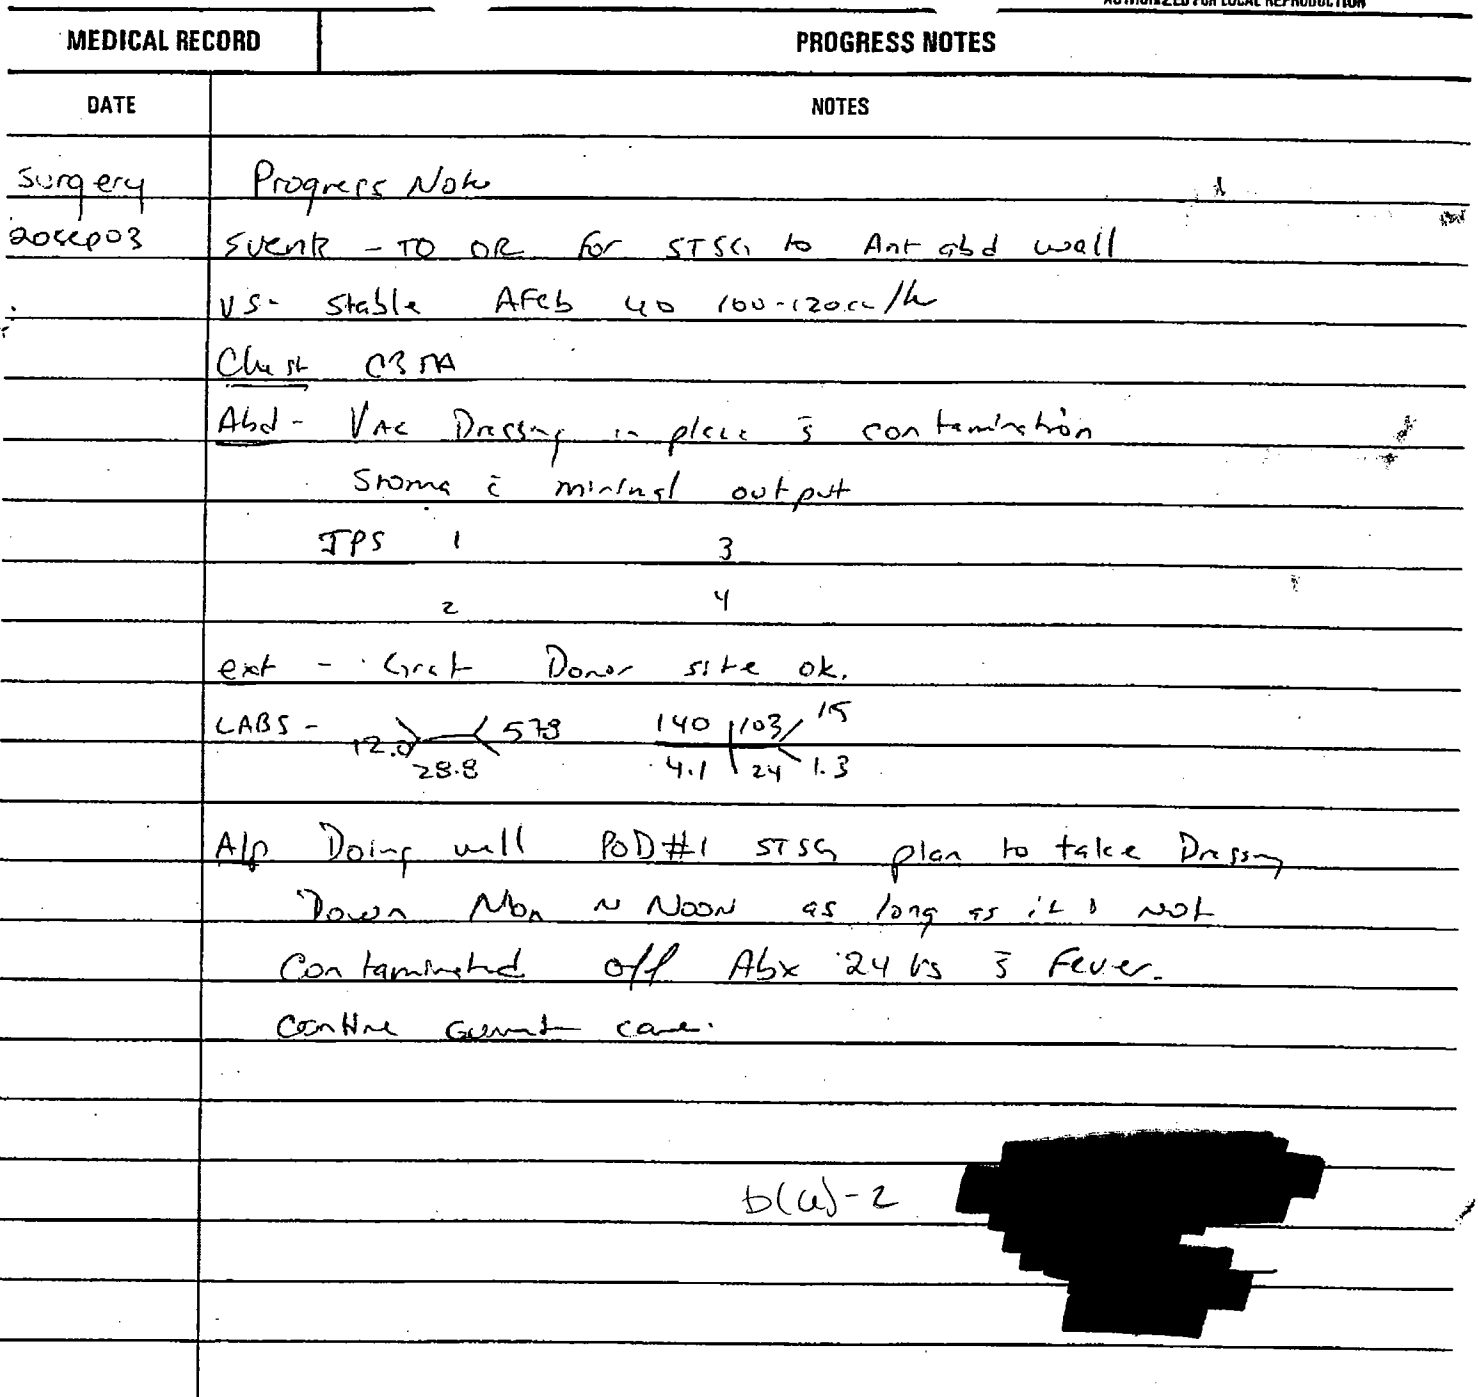 AUTHORIZED FOR LOCAL REPRODUCTION
MEDICAL RECORD PROGRESS NOTES
DATE NOTES
Surgery Progress Note
20Sep03 Events - TO OR for STSG to Ant abd wall
VS- Stable AFeb UO 100-120cc/hr
Chest CBTA
Abd- VAC Dressing in place s̄ contamination
Stoma c̄ minimal output
JPS 1 3
2 4
ext - Donor site ok.
LABS - 12.0 28.8 579 140 103 15
4.1 24 1.3
A/P Doing well POD#1 STSG plan to take Dressing
Down Mon ~ Noon as long as it not
Contaminated off Abx 24 s̄ Fever.
current care.